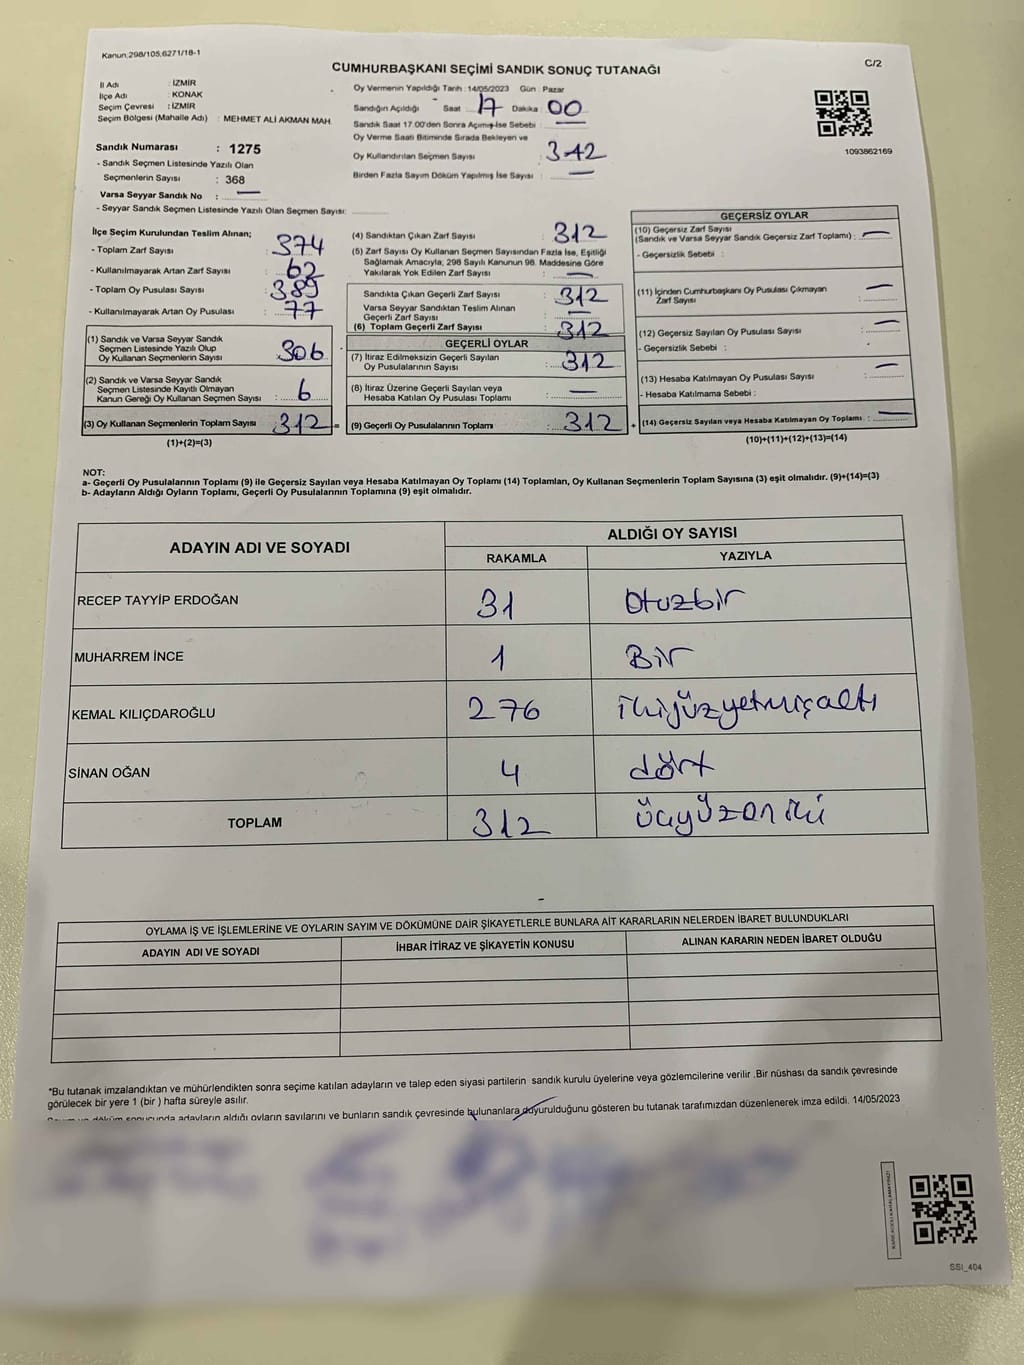 Kanun.298/105,6271/18-1
C/2
CUMHURBAŞKANI SEÇİMİ SANDIK SONUÇ TUTANAĞI
İl Adı : İZMİR
İlçe Adı : KONAK
Seçim Çevresi : İZMİR
Seçim Bölgesi (Mahalle Adı) : MEHMET ALİ AKMAN MAH.
Sandık Numarası : 1275
- Sandık Seçmen Listesinde Yazılı Olan
Seçmenlerin Sayısı : 368
Varsa Seyyar Sandık No : —
- Seyyar Sandık Seçmen Listesinde Yazılı Olan Seçmen Sayısı:
Oy Vermenin Yapıldığı Tarih : 14/05/2023 Gün : Pazar
Sandığın Açıldığı Saat : 17 Dakika : 00
Sandık Saat 17.00'den Sonra Açılmış İse Sebebi : —
Oy Verme Saati Bitiminde Sırada Bekleyen ve
Oy Kullandırılan Seçmen Sayısı : 312
Birden Fazla Sayım Döküm Yapılmış İse Sayısı : —
1093862169
İlçe Seçim Kurulundan Teslim Alınan;
- Toplam Zarf Sayısı : 374
- Kullanılmayarak Artan Zarf Sayısı : 62
- Toplam Oy Pusulası Sayısı : 389
- Kullanılmayarak Artan Oy Pusulası : 77
(1) Sandık ve Varsa Seyyar Sandık
Seçmen Listesinde Yazılı Olup
Oy Kullanan Seçmenlerin Sayısı : 306
(2) Sandık ve Varsa Seyyar Sandık
Seçmen Listesinde Kayıtlı Olmayan
Kanun Gereği Oy Kullanan Seçmen Sayısı : 6
(3) Oy Kullanan Seçmenlerin Toplam Sayısı : 312 =
(1)+(2)=(3)
(4) Sandıktan Çıkan Zarf Sayısı : 312
(5) Zarf Sayısı Oy Kullanan Seçmen Sayısından Fazla İse, Eşitliği
Sağlamak Amacıyla, 298 Sayılı Kanunun 98. Maddesine Göre
Yakılarak Yok Edilen Zarf Sayısı : —
Sandıkta Çıkan Geçerli Zarf Sayısı : 312
Varsa Seyyar Sandıktan Teslim Alınan
Geçerli Zarf Sayısı : —
(6) Toplam Geçerli Zarf Sayısı : 312
GEÇERLİ OYLAR
(7) İtiraz Edilmeksizin Geçerli Sayılan
Oy Pusulalarının Sayısı : 312
(8) İtiraz Üzerine Geçerli Sayılan veya
Hesaba Katılan Oy Pusulası Toplamı : —
(9) Geçerli Oy Pusulalarının Toplamı : 312 +
GEÇERSİZ OYLAR
(10) Geçersiz Zarf Sayısı
(Sandık ve Varsa Seyyar Sandık Geçersiz Zarf Toplamı) : —
- Geçersizlik Sebebi :
(11) İçinden Cumhurbaşkanı Oy Pusulası Çıkmayan
Zarf Sayısı : —
(12) Geçersiz Sayılan Oy Pusulası Sayısı : —
- Geçersizlik Sebebi :
(13) Hesaba Katılmayan Oy Pusulası Sayısı : —
- Hesaba Katılmama Sebebi :
(14) Geçersiz Sayılan veya Hesaba Katılmayan Oy Toplamı : —
(10)+(11)+(12)+(13)=(14)
NOT:
a- Geçerli Oy Pusulalarının Toplamı (9) ile Geçersiz Sayılan veya Hesaba Katılmayan Oy Toplamı (14) Toplamları, Oy Kullanan Seçmenlerin Toplam Sayısına (3) eşit olmalıdır. (9)+(14)=(3)
b- Adayların Aldığı Oyların Toplamı, Geçerli Oy Pusulalarının Toplamına (9) eşit olmalıdır.
ADAYIN ADI VE SOYADI
ALDIĞI OY SAYISI
RAKAMLA YAZIYLA
RECEP TAYYİP ERDOĞAN 31 Otuzbir
MUHARREM İNCE 1 Bir
KEMAL KILIÇDAROĞLU 276 ikiyüzyetmişaltı
SİNAN OĞAN 4 dört
TOPLAM 312 üçyüzoniki
OYLAMA İŞ VE İŞLEMLERİNE VE OYLARIN SAYIM VE DÖKÜMÜNE DAİR ŞİKAYETLERLE BUNLARA AİT KARARLARIN NELERDEN İBARET BULUNDUKLARI
ADAYIN ADI VE SOYADI İHBAR İTİRAZ VE ŞİKAYETİN KONUSU ALINAN KARARIN NEDEN İBARET OLDUĞU
*Bu tutanak imzalandıktan ve mühürlendikten sonra seçime katılan adayların ve talep eden siyasi partilerin sandık kurulu üyelerine veya gözlemcilerine verilir .Bir nüshası da sandık çevresinde
görülecek bir yere 1 (bir ) hafta süreyle asılır.
Sayım ve döküm sonucunda adayların aldığı oyların sayılarını ve bunların sandık çevresinde bulunanlara duyurulduğunu gösteren bu tutanak tarafımızdan düzenlenerek imza edildi. 14/05/2023
SSI_404